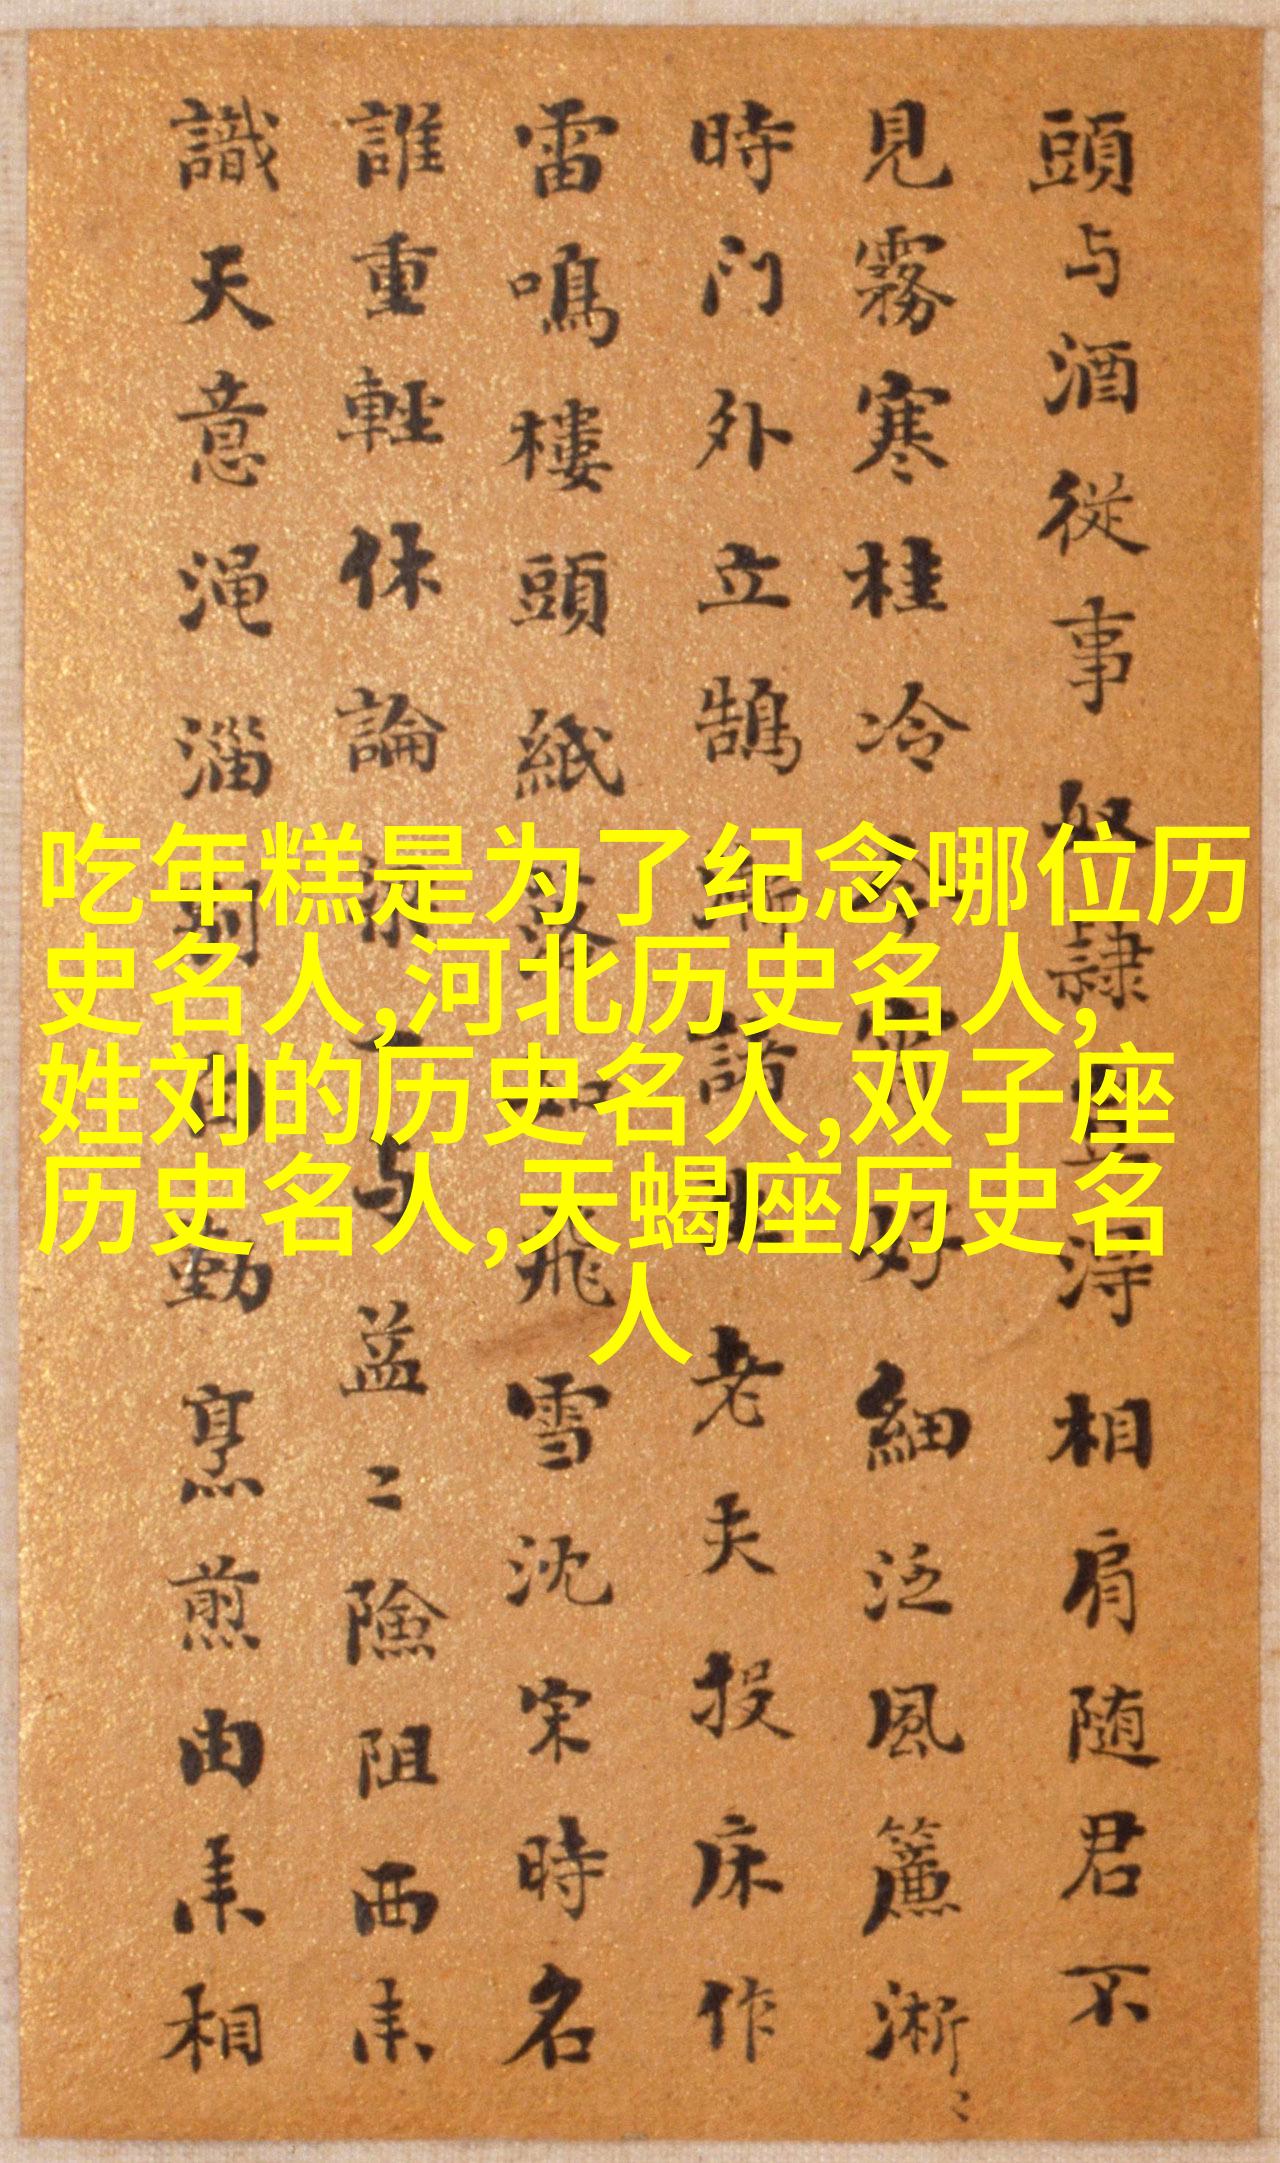 頭与酒從事奴隸星得相肩随君不
見霧寒桂冷好細泛風簾淅〻
時門外立鵠諸老夫投床作
雷鳴樓頭紙落如飛雪沈宋時名
誰重輕休論与益〻險阻西来
識天意渑淄烹煎由来相
吃年糕是为了纪念哪位历
史名人,河北历史名人,
姓刘的历史名人,双子座
历史名人,天蝎座历史名
人